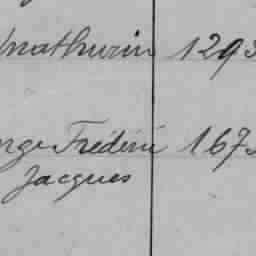 Mathurin 1293
Frédéri 167
Jacques